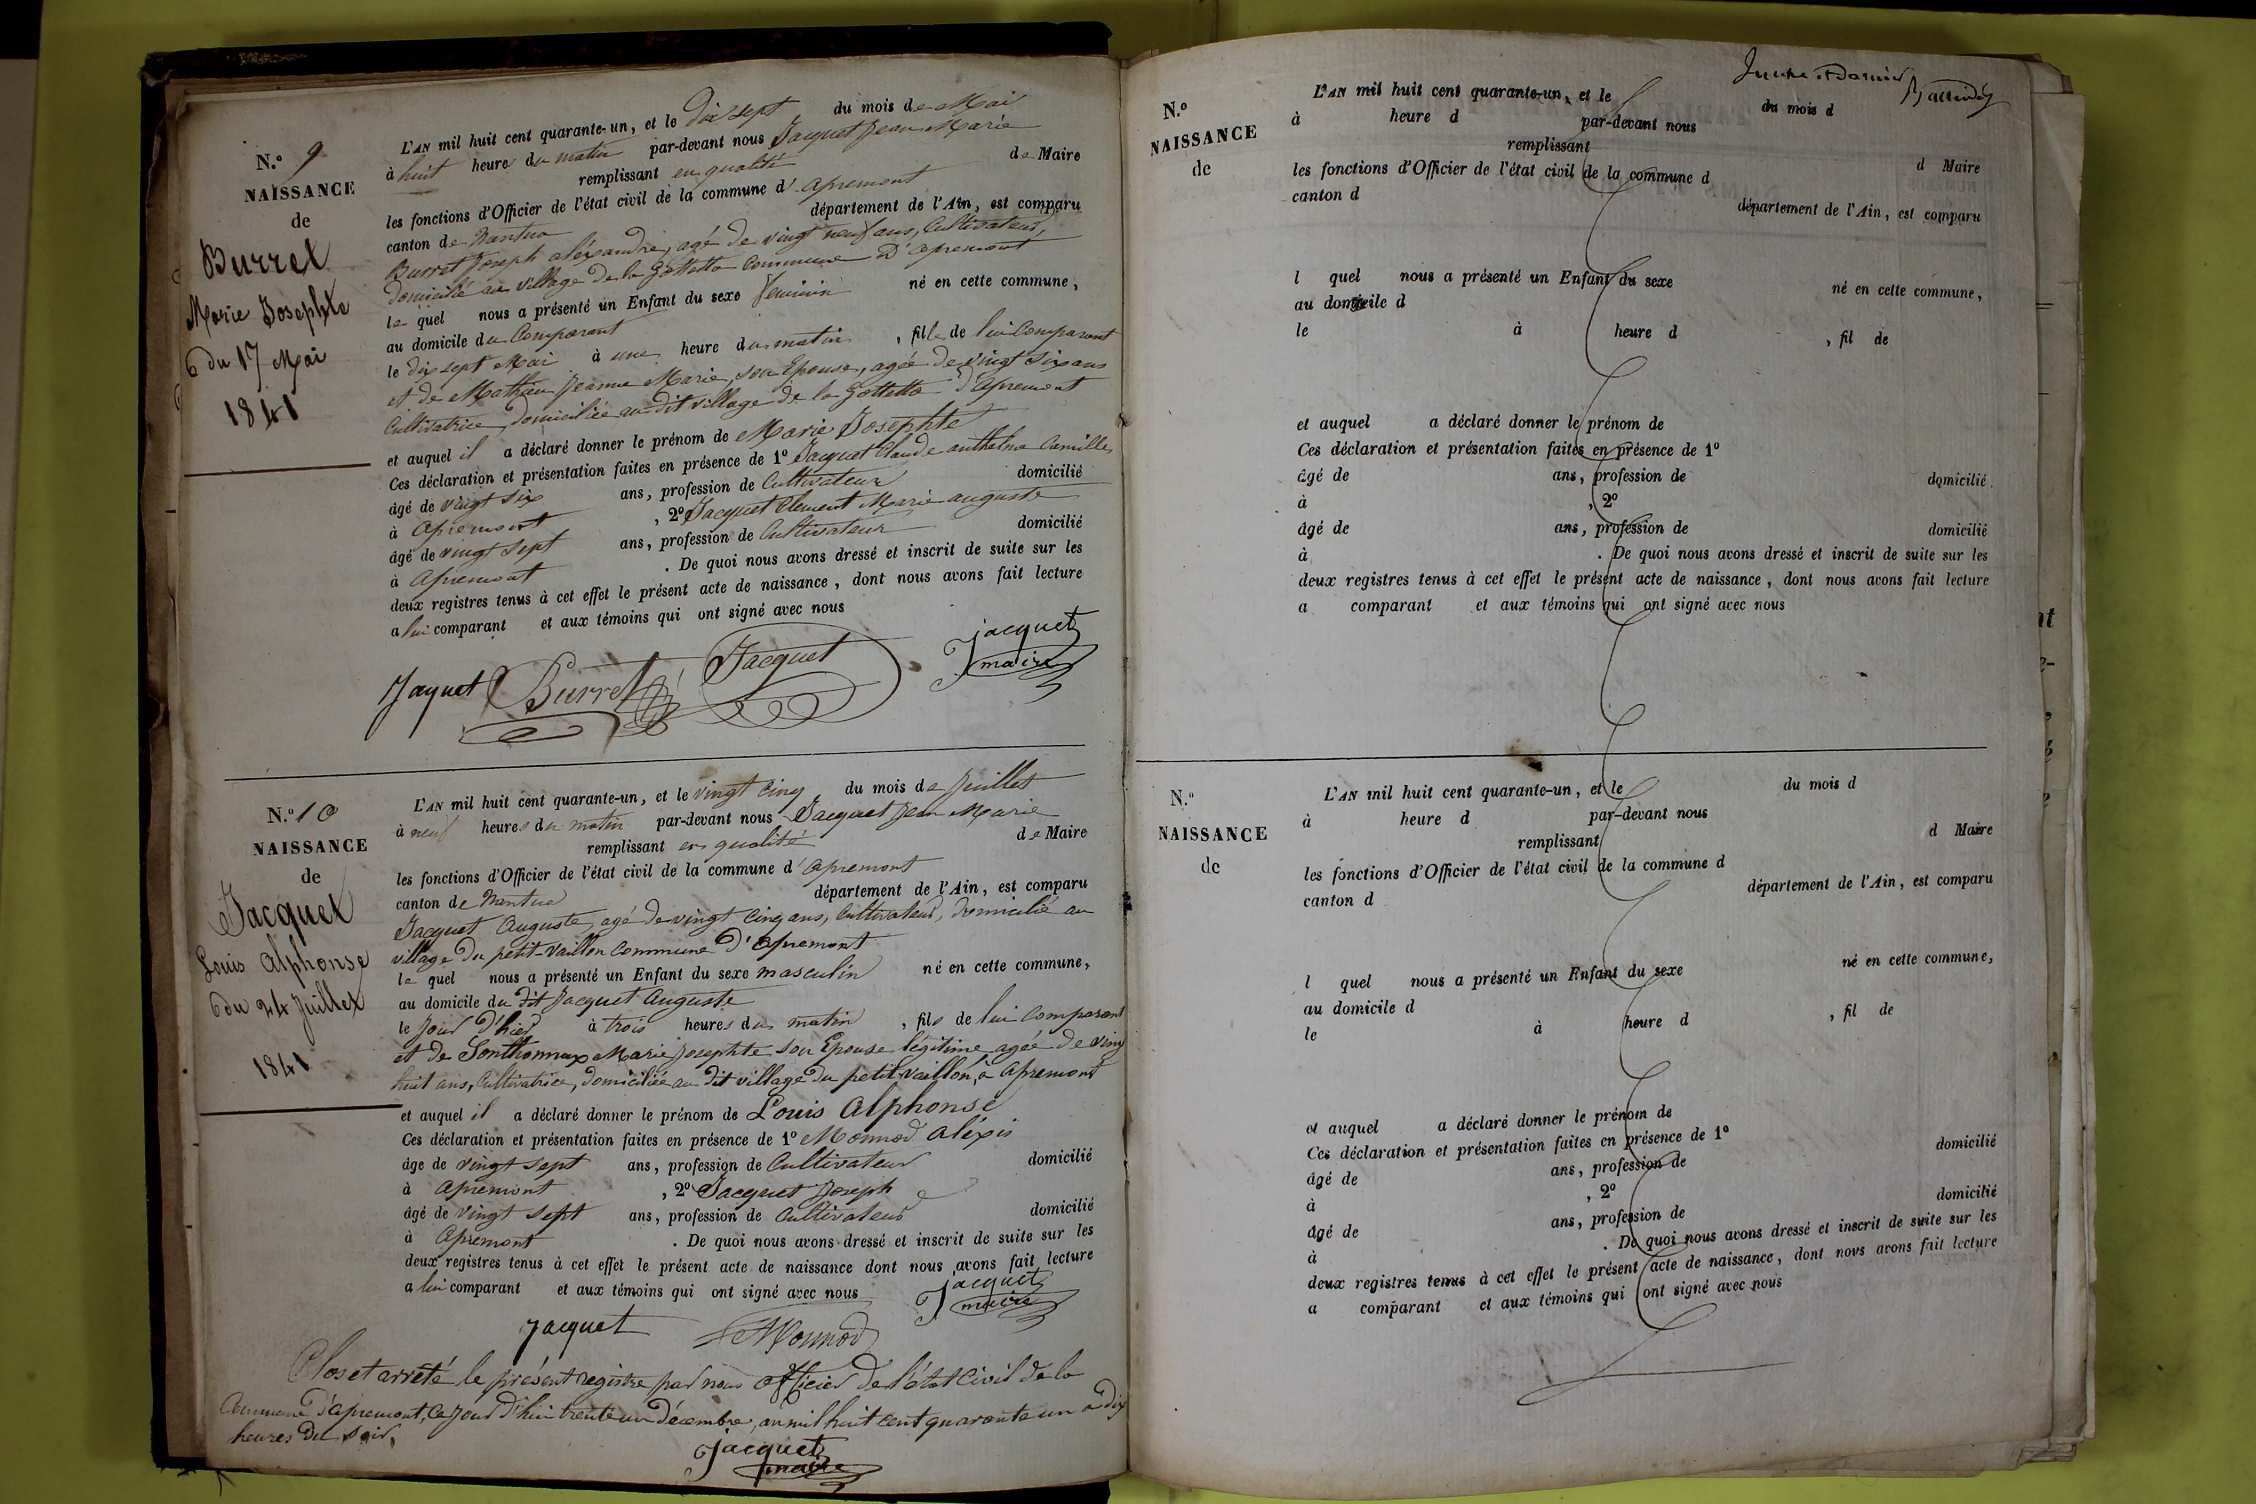 N.º 9
NAISSANCE
de
Burret
Marie Josephte
du 17 Mai
1841
L'AN mil huit cent quarante-un, et le dix sept du mois de Mai
à huit heures du matin par-devant nous Jacquet Jean Marie
remplissant en qualité de Maire
les fonctions d'Officier de l'état civil de la commune d'apremont
canton de Nantua département de l'Ain, est comparu
Burret Joseph aléxandre, agé de vingt neuf ans, Cultivateur,
domicilié au village de la Gottetta Commune D'apremont
le quel nous a présenté un Enfant du sexe feminin né en cette commune,
au domicile du Comparant
le dix sept Mai à une heure du matin, fille de lui Comparant
et de Mathieu Jeanne Marie, son Epouse, agée de vingt six ans
Cultivatrice domiciliée au dit village de la Gottetta d'apremont
et auquel il a déclaré donner le prénom de Marie Josephte
Ces déclaration et présentation faites en présence de 1º Jacquet Claude anthelme Camille,
âgé de vingt six ans, profession de Cultivateur domicilié
à apremont, 2º Jacquet Clement Marie auguste
âgé de vingt sept ans, profession de Cultivateur domicilié
à apremont. De quoi nous avons dressé et inscrit de suite sur les
deux registres tenus à cet effet le présent acte de naissance, dont nous avons fait lecture
a lui comparant et aux témoins qui ont signé avec nous
Jaquet Burret Jacquet jacquet
maire
N.º 10
NAISSANCE
de
Jacquet
Louis Alphonse
du 24 Juillet
1841
L'AN mil huit cent quarante-un, et le vingt cinq du mois de Juillet
à neuf heures du matin par-devant nous Jacquet Jean Marie
remplissant en qualité de Maire
les fonctions d'Officier de l'état civil de la commune d'apremont
canton de Nantua département de l'Ain, est comparu
Jacquet Auguste, agé de vingt cinq ans, Cultivateur, domicilié au
village du petit-Vaillon Commune d'apremont
le quel nous a présenté un Enfant du sexe masculin né en cette commune,
au domicile du dit Jacquet Auguste
le jour d'hier à trois heures du matin, fils de lui Comparant
et de Sonthonnax Marie Josephte son Epouse légitime agée de vingt
huit ans, Cultivatrice, domiciliée au dit village du petit Vaillon, à apremont
et auquel il a déclaré donner le prénom de Louis Alphonse
Ces déclaration et présentation faites en présence de 1º Monnod aléxis
âge de vingt sept ans, profession de Cultivateur domicilié
à apremont, 2º Jacquet Joseph
âgé de vingt sept ans, profession de Cultivateur domicilié
à apremont. De quoi nous avons dressé et inscrit de suite sur les
deux registres tenus à cet effet le présent acte de naissance dont nous avons fait lecture
a lui comparant et aux témoins qui ont signé avec nous
jacquet
maire
jacquet Monnod
Clos et arrêté le présent registre par nous officier de l'état civil de la
Commune d'apremont, ce jour d'hui trente un Décembre, an mil huit cent quarante un à dix
heures du soir.
jacquet
maire
N.º
NAISSANCE
de
L'AN mil huit cent quarante-un, et le du mois d
à heure d par-devant nous
remplissant d Maire
les fonctions d'Officier de l'état civil de la commune d
canton d département de l'Ain, est comparu
l quel nous a présenté un Enfant du sexe né en cette commune,
au domicile d
le à heure d, fil de
et auquel a déclaré donner le prénom de
Ces déclaration et présentation faites en présence de 1º
âgé de ans, profession de domicilié
à, 2º
âgé de ans, profession de domicilié
à. De quoi nous avons dressé et inscrit de suite sur les
deux registres tenus à cet effet le présent acte de naissance, dont nous avons fait lecture
a comparant et aux témoins qui ont signé avec nous
N.º
NAISSANCE
de
L'AN mil huit cent quarante-un, et le du mois d
à heure d par-devant nous
remplissant d Maire
les fonctions d'Officier de l'état civil de la commune d
canton d département de l'Ain, est comparu
l quel nous a présenté un Enfant du sexe né en cette commune,
au domicile d
le à heure d, fil de
et auquel a déclaré donner le prénom de
Ces déclaration et présentation faites en présence de 1º
âgé de ans, profession de domicilié
à, 2º
âgé de ans, profession de domicilié
à. De quoi nous avons dressé et inscrit de suite sur les
deux registres tenus à cet effet le présent acte de naissance, dont nous avons fait lecture
a comparant et aux témoins qui ont signé avec nous